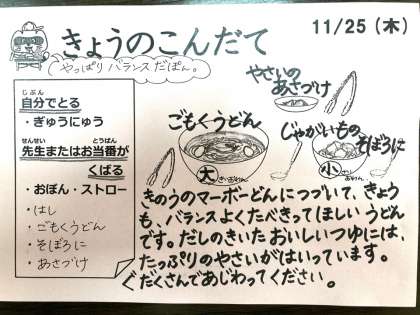 きょうのこんだて
11/25（木）
やっぱり バランス だぽん。
じぶん
自分でとる
・ぎゅうにゅう
せんせい とうばん
先生またはお当番が
くばる
・おぼん・ストロー
・はし
・ごもくうどん
・そぼろに
・あさづけ
やさいの
あさづけ
ごもくうどん
大
じゃがいもの
そぼろに
小
きのうのマーボーどんにつづいて、きょう
も、バランスよくたべきってほしい うどん
です。だしのきいた おいしいつゆには、
たっぷりのやさいがはいっています。
ぐだくさんであじわってください。